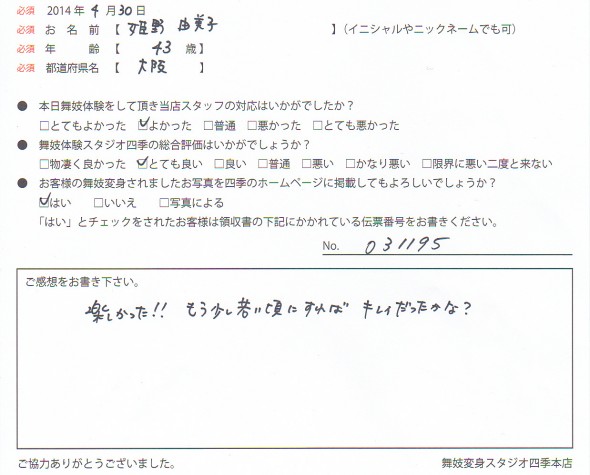 必須 2014年4月30日
必須 お名前【 姫野 由美子 】(イニシャルやニックネームでも可)
必須 年齢【 43 歳】
必須 都道府県名【 大阪 】
● 本日舞妓体験をして頂き当店スタッフの対応はいかがでしたか?
□とてもよかった ☑よかった □普通 □悪かった □とても悪かった
● 舞妓体験スタジオ四季の総合評価はいかがでしょうか?
□物凄く良かった ☑とても良い □良い □普通 □悪い □かなり悪い □限界に悪い二度と来ない
● お客様の舞妓変身されましたお写真を四季のホームページに掲載してもよろしいでしょうか?
☑はい □いいえ □写真による
「はい」とチェックをされたお客様は領収書の下記にかかれている伝票番号をお書きください。
No. 031195
ご感想をお書き下さい。
楽しかった!! もう少し若い頃にすれば キレイだったかな?
ご協力ありがとうございました。 舞妓変身スタジオ四季本店